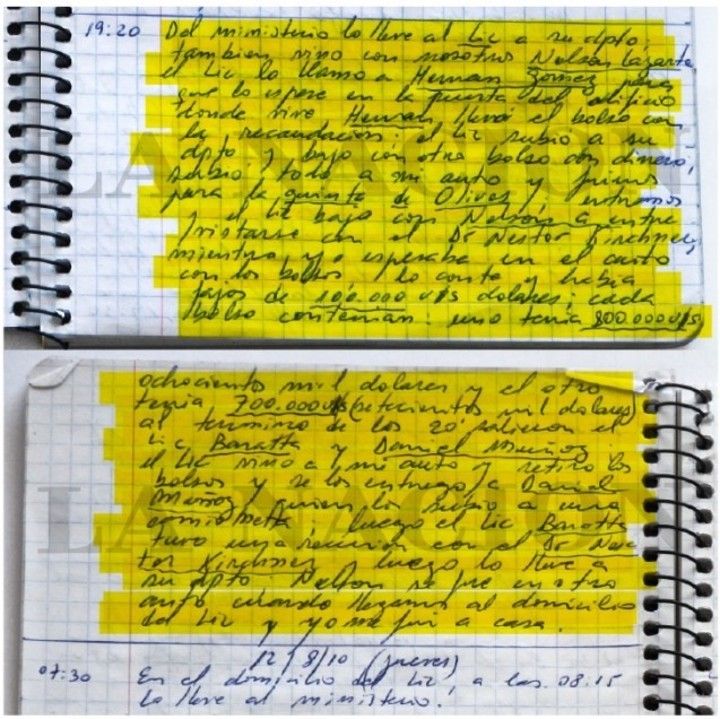 19:20 Del ministerio lo lleve al Lic a su dpto,
tambien vino con nosotros Nelson Lazarte
el Lic lo llamo a Hernan Gomez para
que lo espere en la puerta del edificio
donde vive Hernan, llevó el bolso con
la recaudacion: el Lic subio a su
dpto y bajo con otro bolso con dinero,
subio todo a mi auto y fuimos
para la quinta de Olivos, entramos
y el Lic bajo con Nelson a entre
vistarse con el Dr Nestor Kirchner,
mientras yo esperaba en el auto
con los bolsos, lo conte y habia
fajos de 100.000 u$s dolares; cada
bolso contenian: uno tenia 800.000 u$s
ochocientos mil dolares y el otro
tenia 700.000 u$s (setecientos mil dolares)
al termino de los 20' salieron el
Lic Baratta y Daniel Muñoz
el Lic vino a mi auto y retiro los
bolsos y se los entrego a Daniel
Muñoz quien los subio a una
camioneta; luego el Lic Baratta
tuvo una reunion con el Dr Nes
tor Kirchner y luego lo lleve a
su dpto. Nelson se fue en otro
auto cuando llegamos al domicilio
del Lic y yo me fui a casa.
12/8/10 (jueves)
07:30 En el domicilio del Lic, a las 08:15
lo lleve al ministerio.
LA NACION
LA NACION